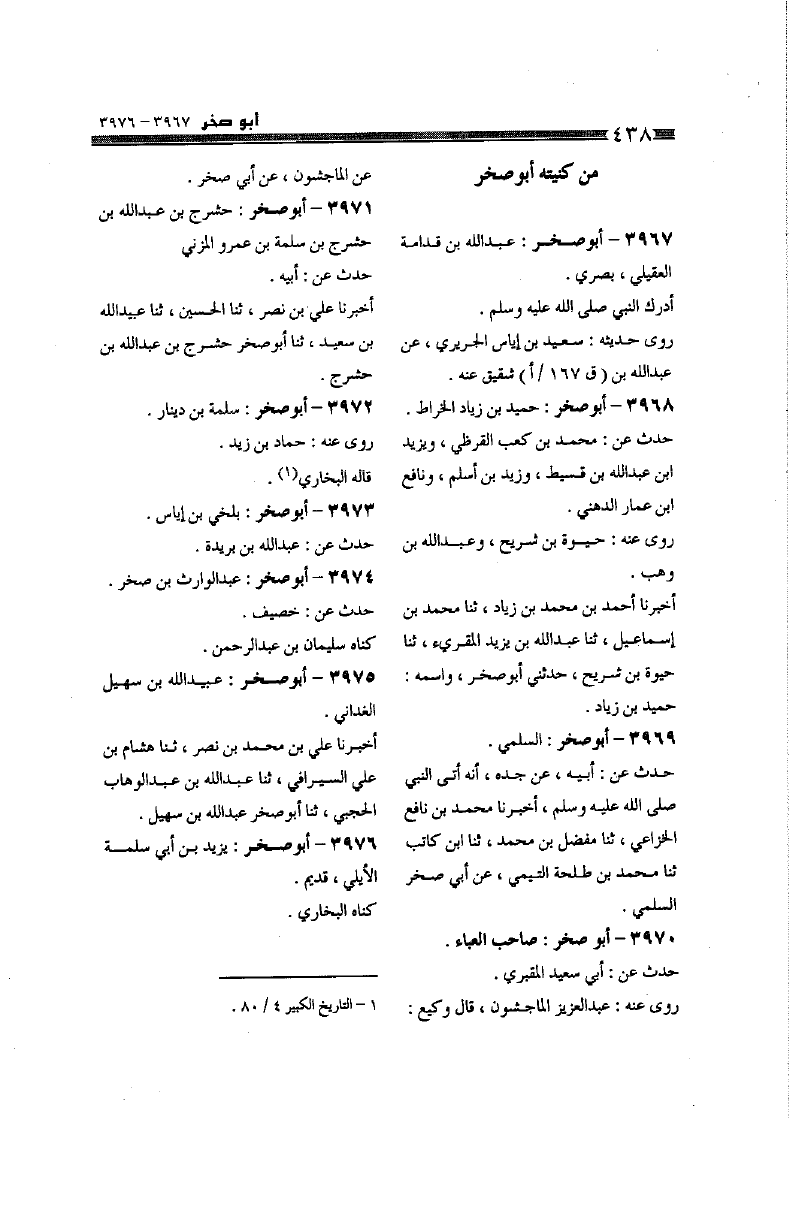 أبو صخر ٣٩٦٧ – ٣٩٧٦
٤٣٨
من كنيته أبو صخر
٣٩٦٧ – أبو صخر : عبدالله بن قدامة
العقيلي ، بصري .
أدرك النبي صلى الله عليه وسلم .
روى حديثه : سعيد بن إياس الجريري ، عن
عبدالله بن ( ق ١٦٧ / أ ) شقيق عنه .
٣٩٦٨ – أبو صخر : حميد بن زياد الخراط .
حدث عن : محمد بن كعب القرظي ، ويزيد
ابن عبدالله بن قسيط ، وزيد بن أسلم ، ونافع
ابن عمار الدهني .
روى عنه : حيوة بن شريح ، وعبدالله بن
وهب .
أخبرنا أحمد بن محمد بن زياد ، ثنا محمد بن
إسماعيل ، ثنا عبدالله بن يزيد المقريء ، ثنا
حيوة بن شريح ، حدثني أبو صخر ، واسمه :
حميد بن زياد .
٣٩٦٩ – أبو صخر : السلمي .
حدث عن : أبيه ، عن جده ، أنه أتى النبي
صلى الله عليه وسلم ، أخبرنا محمد بن نافع
الخزاعي ، ثنا مفضل بن محمد ، ثنا ابن كاتب
ثنا محمد بن طلحة التيمي ، عن أبي صخر
السلمي .
٣٩٧٠ – أبو صخر : صاحب العباء .
حدث عن : أبي سعيد المقبري .
روى عنه : عبدالعزيز الماجشون ، قال وكيع :
عن الماجشون ، عن أبي صخر .
٣٩٧١ – أبو صخر : حشرج بن عبدالله بن
حشرج بن سلمة بن عمرو المزني
حدث عن : أبيه .
أخبرنا علي بن نصر ، ثنا الحسين ، ثنا عبيدالله
بن سعيد ، ثنا أبو صخر حشرج بن عبدالله بن
حشرج .
٣٩٧٢ – أبو صخر : سلمة بن دينار .
روى عنه : حماد بن زيد .
قاله البخاري(١) .
٣٩٧٣ – أبو صخر : بلخي بن إياس .
حدث عن : عبدالله بن بريدة .
٣٩٧٤ – أبو صخر : عبدالوارث بن صخر .
حدث عن : خصيف .
كناه سليمان بن عبدالرحمن .
٣٩٧٥ – أبو صخر : عبيدالله بن سهيل
الغداني .
أخبرنا علي بن محمد بن نصر ، ثنا هشام بن
علي السيرافي ، ثنا عبدالله بن عبدالوهاب
الحجبي ، ثنا أبو صخر عبدالله بن سهيل .
٣٩٧٦ – أبو صخر : يزيد بن أبي سلمة
الأيلي ، قديم .
كناه البخاري .
١ – التاريخ الكبير ٤ / ٨٠ .